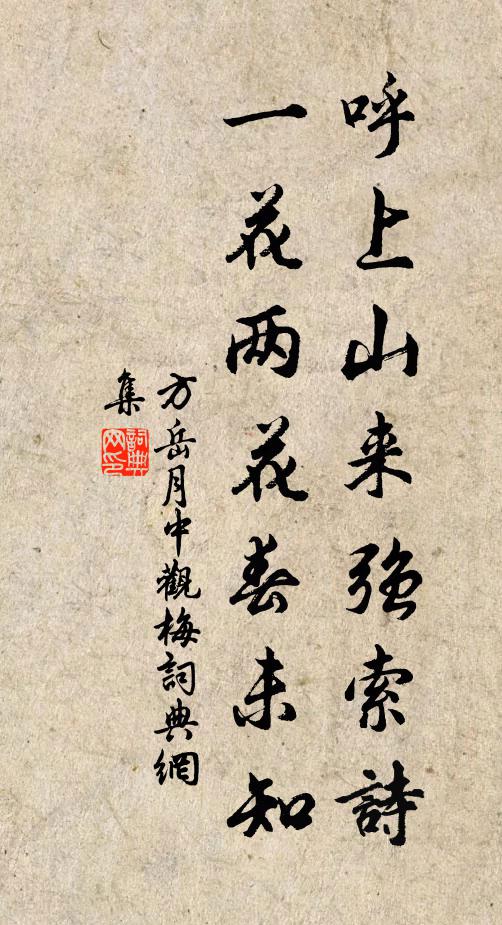 呼上山来强索詩
一花两花春未知
方岳月中觀梅詞典網
集
詞典網印